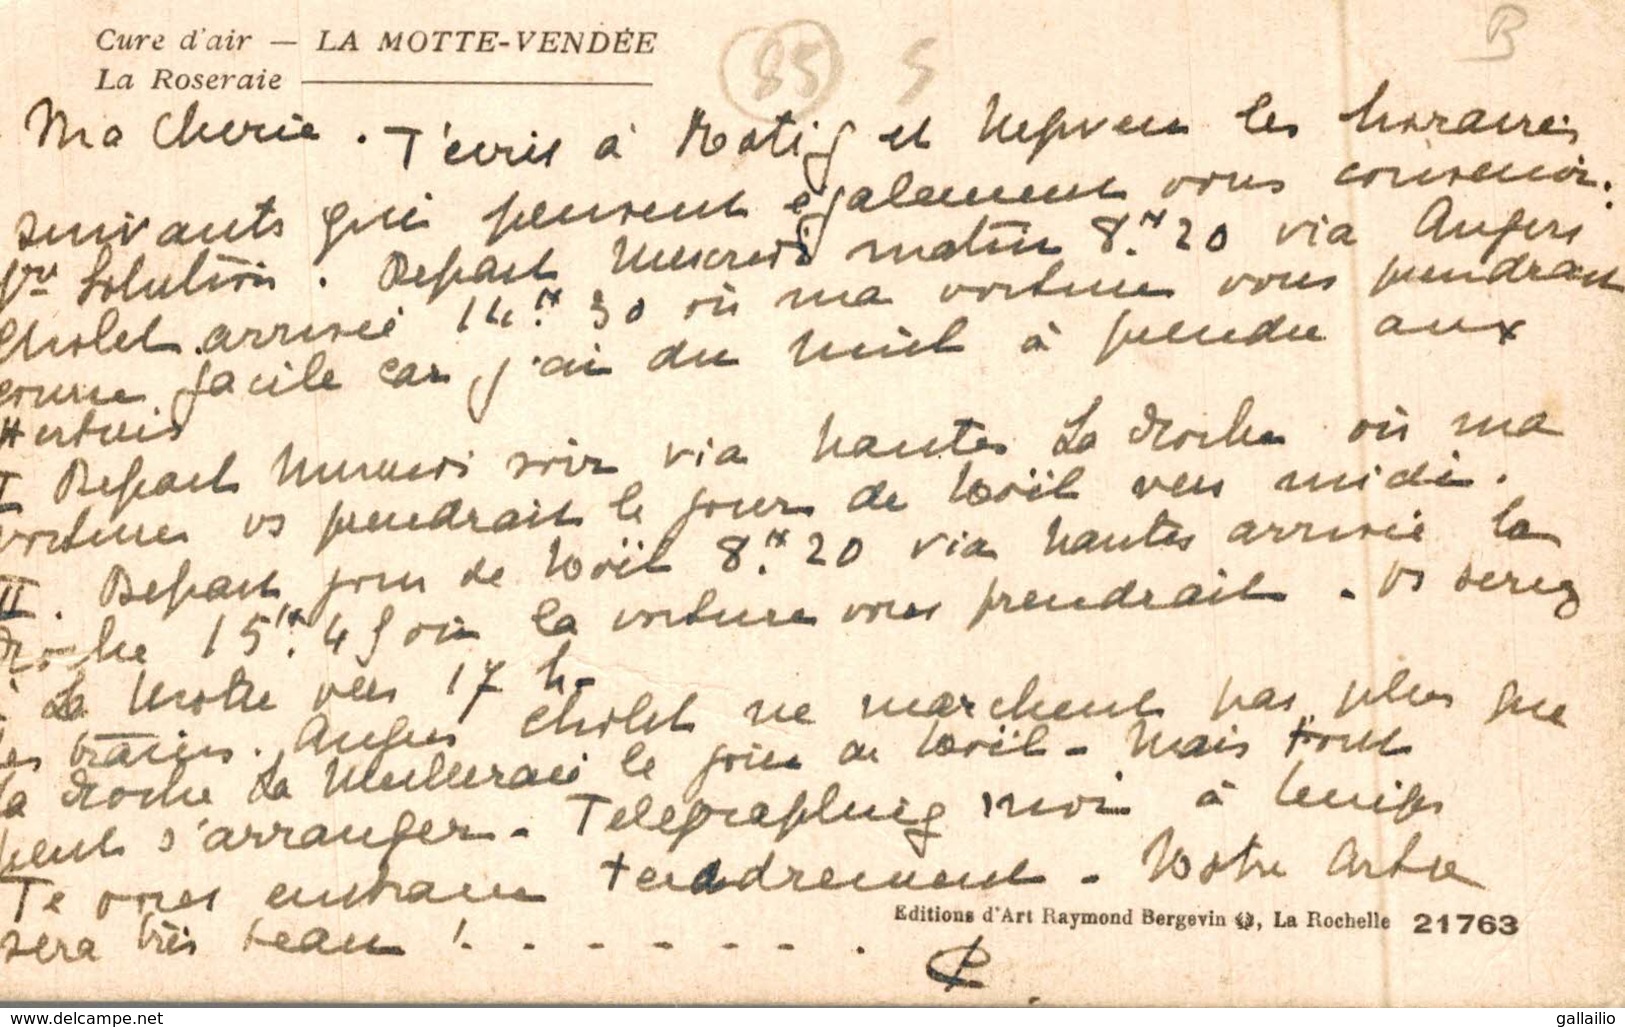 Cure d'air — LA MOTTE-VENDÉE
La Roseraie
85 S
B
Ma Cherie. T'écris à et les horaires
suivants qui peuvent également vous convenir.
1re Solution. Depart Mercredi matin 8.H 20 via Angers
Cholet arrivée 14.H 30 où ma voiture vous prendrait
course facile car j'ai du miel à prendre aux
I Depart Mercredi soir via Nantes La Roche où ma
voiture vs prendrait le jour de Noël vers midi.
II. Depart jour de Noël 8.H 20 via Nantes arrivée la
Roche 15.H 45 où la voiture vous prendrait. Vs serez
à La Motte vers 17 h.
les trains. Angers Cholet ne marchent pas plus que
la Roche La le jour de Noël - Mais tout
peut s'arranger. Telegraphiez moi à temps
Te vous embrasse tendrement. Notre Arbre
sera très beau !. - - - - - - .
Editions d'Art Raymond Bergevin, La Rochelle 21763
www.delcampe.net
gallailio